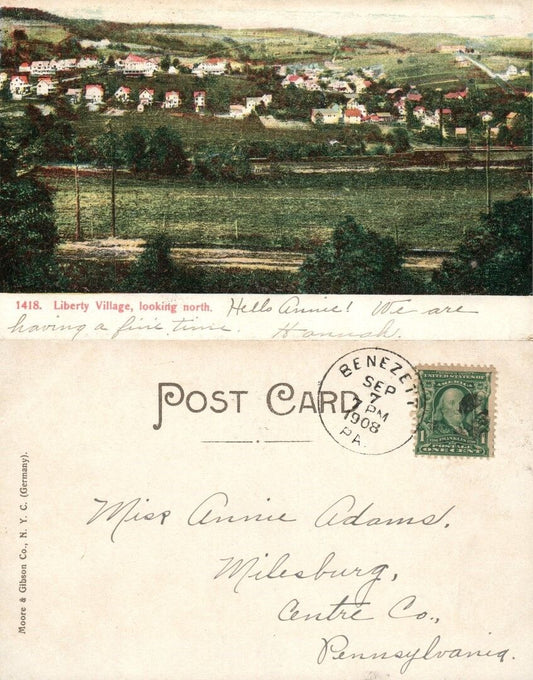 1418. Liberty Village, looking north. Hello Annie! We are
having a fine time. Hannah.
POST CARD
BENEZETT
SEP
7
7 PM
1908
PA.
UNITED STATES OF AMERICA
FRANKLIN
1 POSTAGE 1
ONE CENT
Moore & Gibson Co., N. Y. C. (Germany).
Miss Annie Adams,
Milesburg,
Centre Co.,
Pennsylvania.